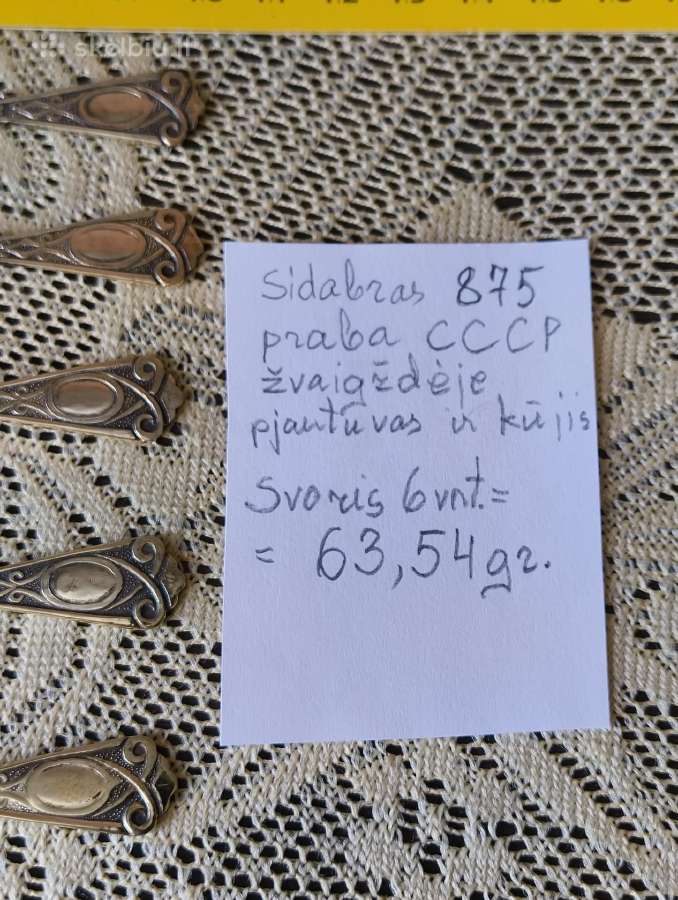 skelbiu.lt
Sidabras 875
praba CCCP
žvaigždėje
pjautuvas ir kūjis
Svoris 6 vnt. =
= 63,54 gr.